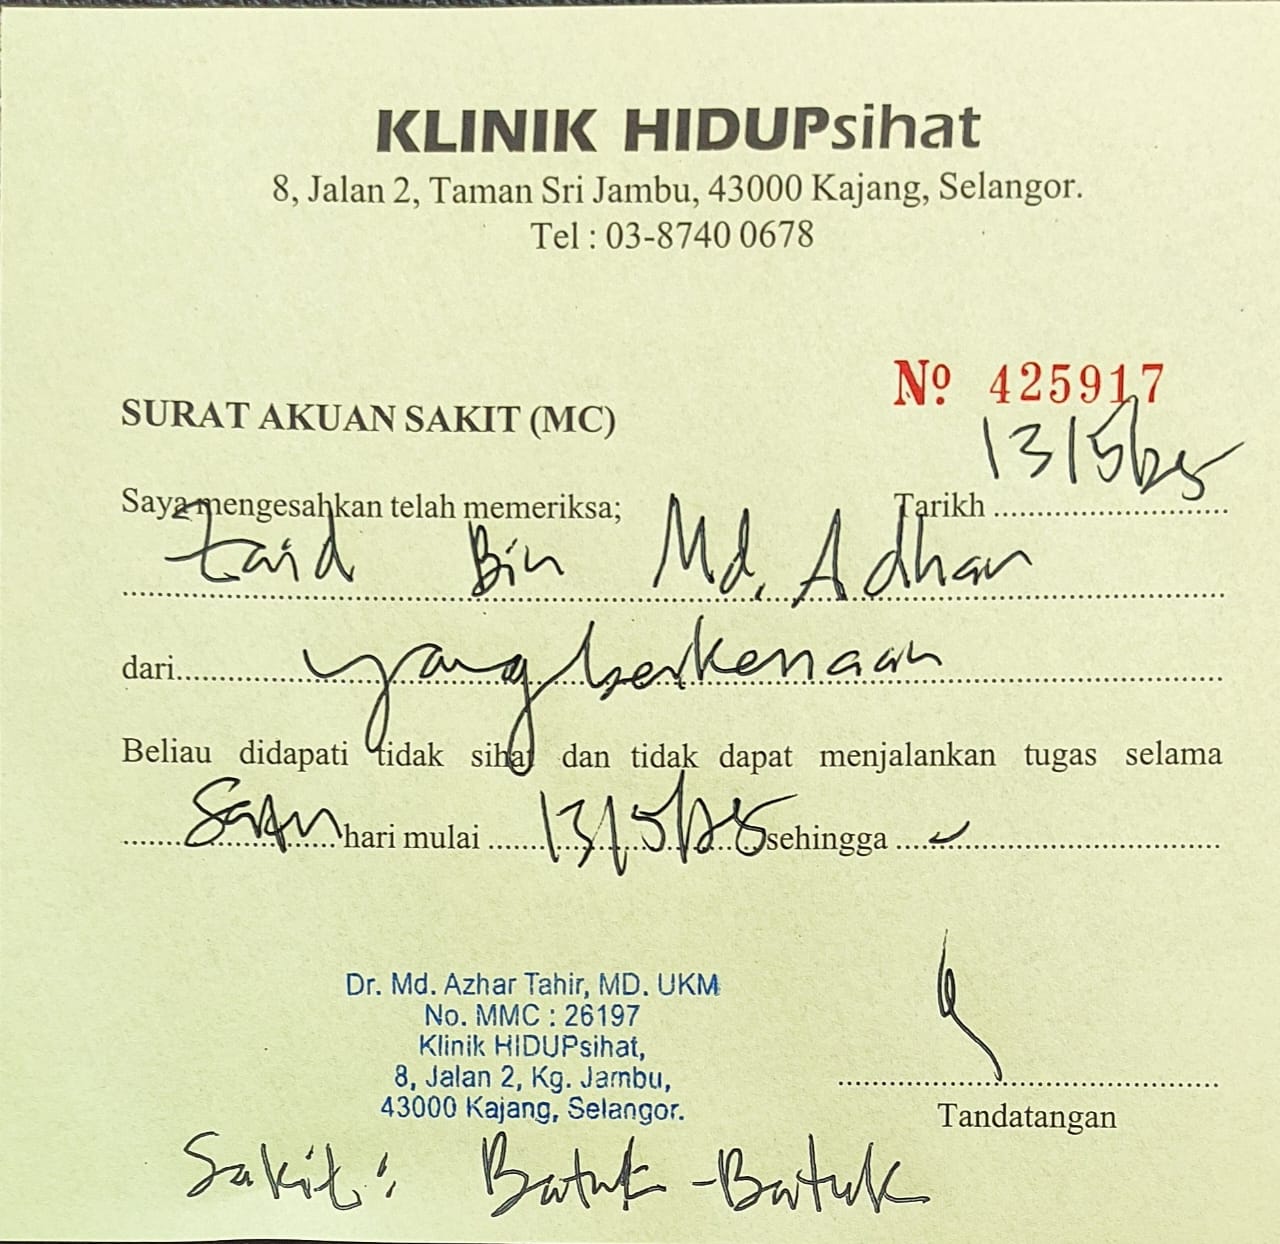 KLINIK HIDUPsihat
8, Jalan 2, Taman Sri Jambu, 43000 Kajang, Selangor.
Tel : 03-8740 0678
Nº 425917
SURAT AKUAN SAKIT (MC)
13/5/25
Saya mengesahkan telah memeriksa; Tarikh
Zaid Bin Md. Adhan
dari yang berkenaan
Beliau didapati tidak sihat dan tidak dapat menjalankan tugas selama
hari mulai 13/5/25 sehingga
Dr. Md. Azhar Tahir, MD. UKM
No. MMC : 26197
Klinik HIDUPsihat,
8, Jalan 2, Kg. Jambu,
43000 Kajang, Selangor.
Tandatangan
Sakit : Batuk-Batuk